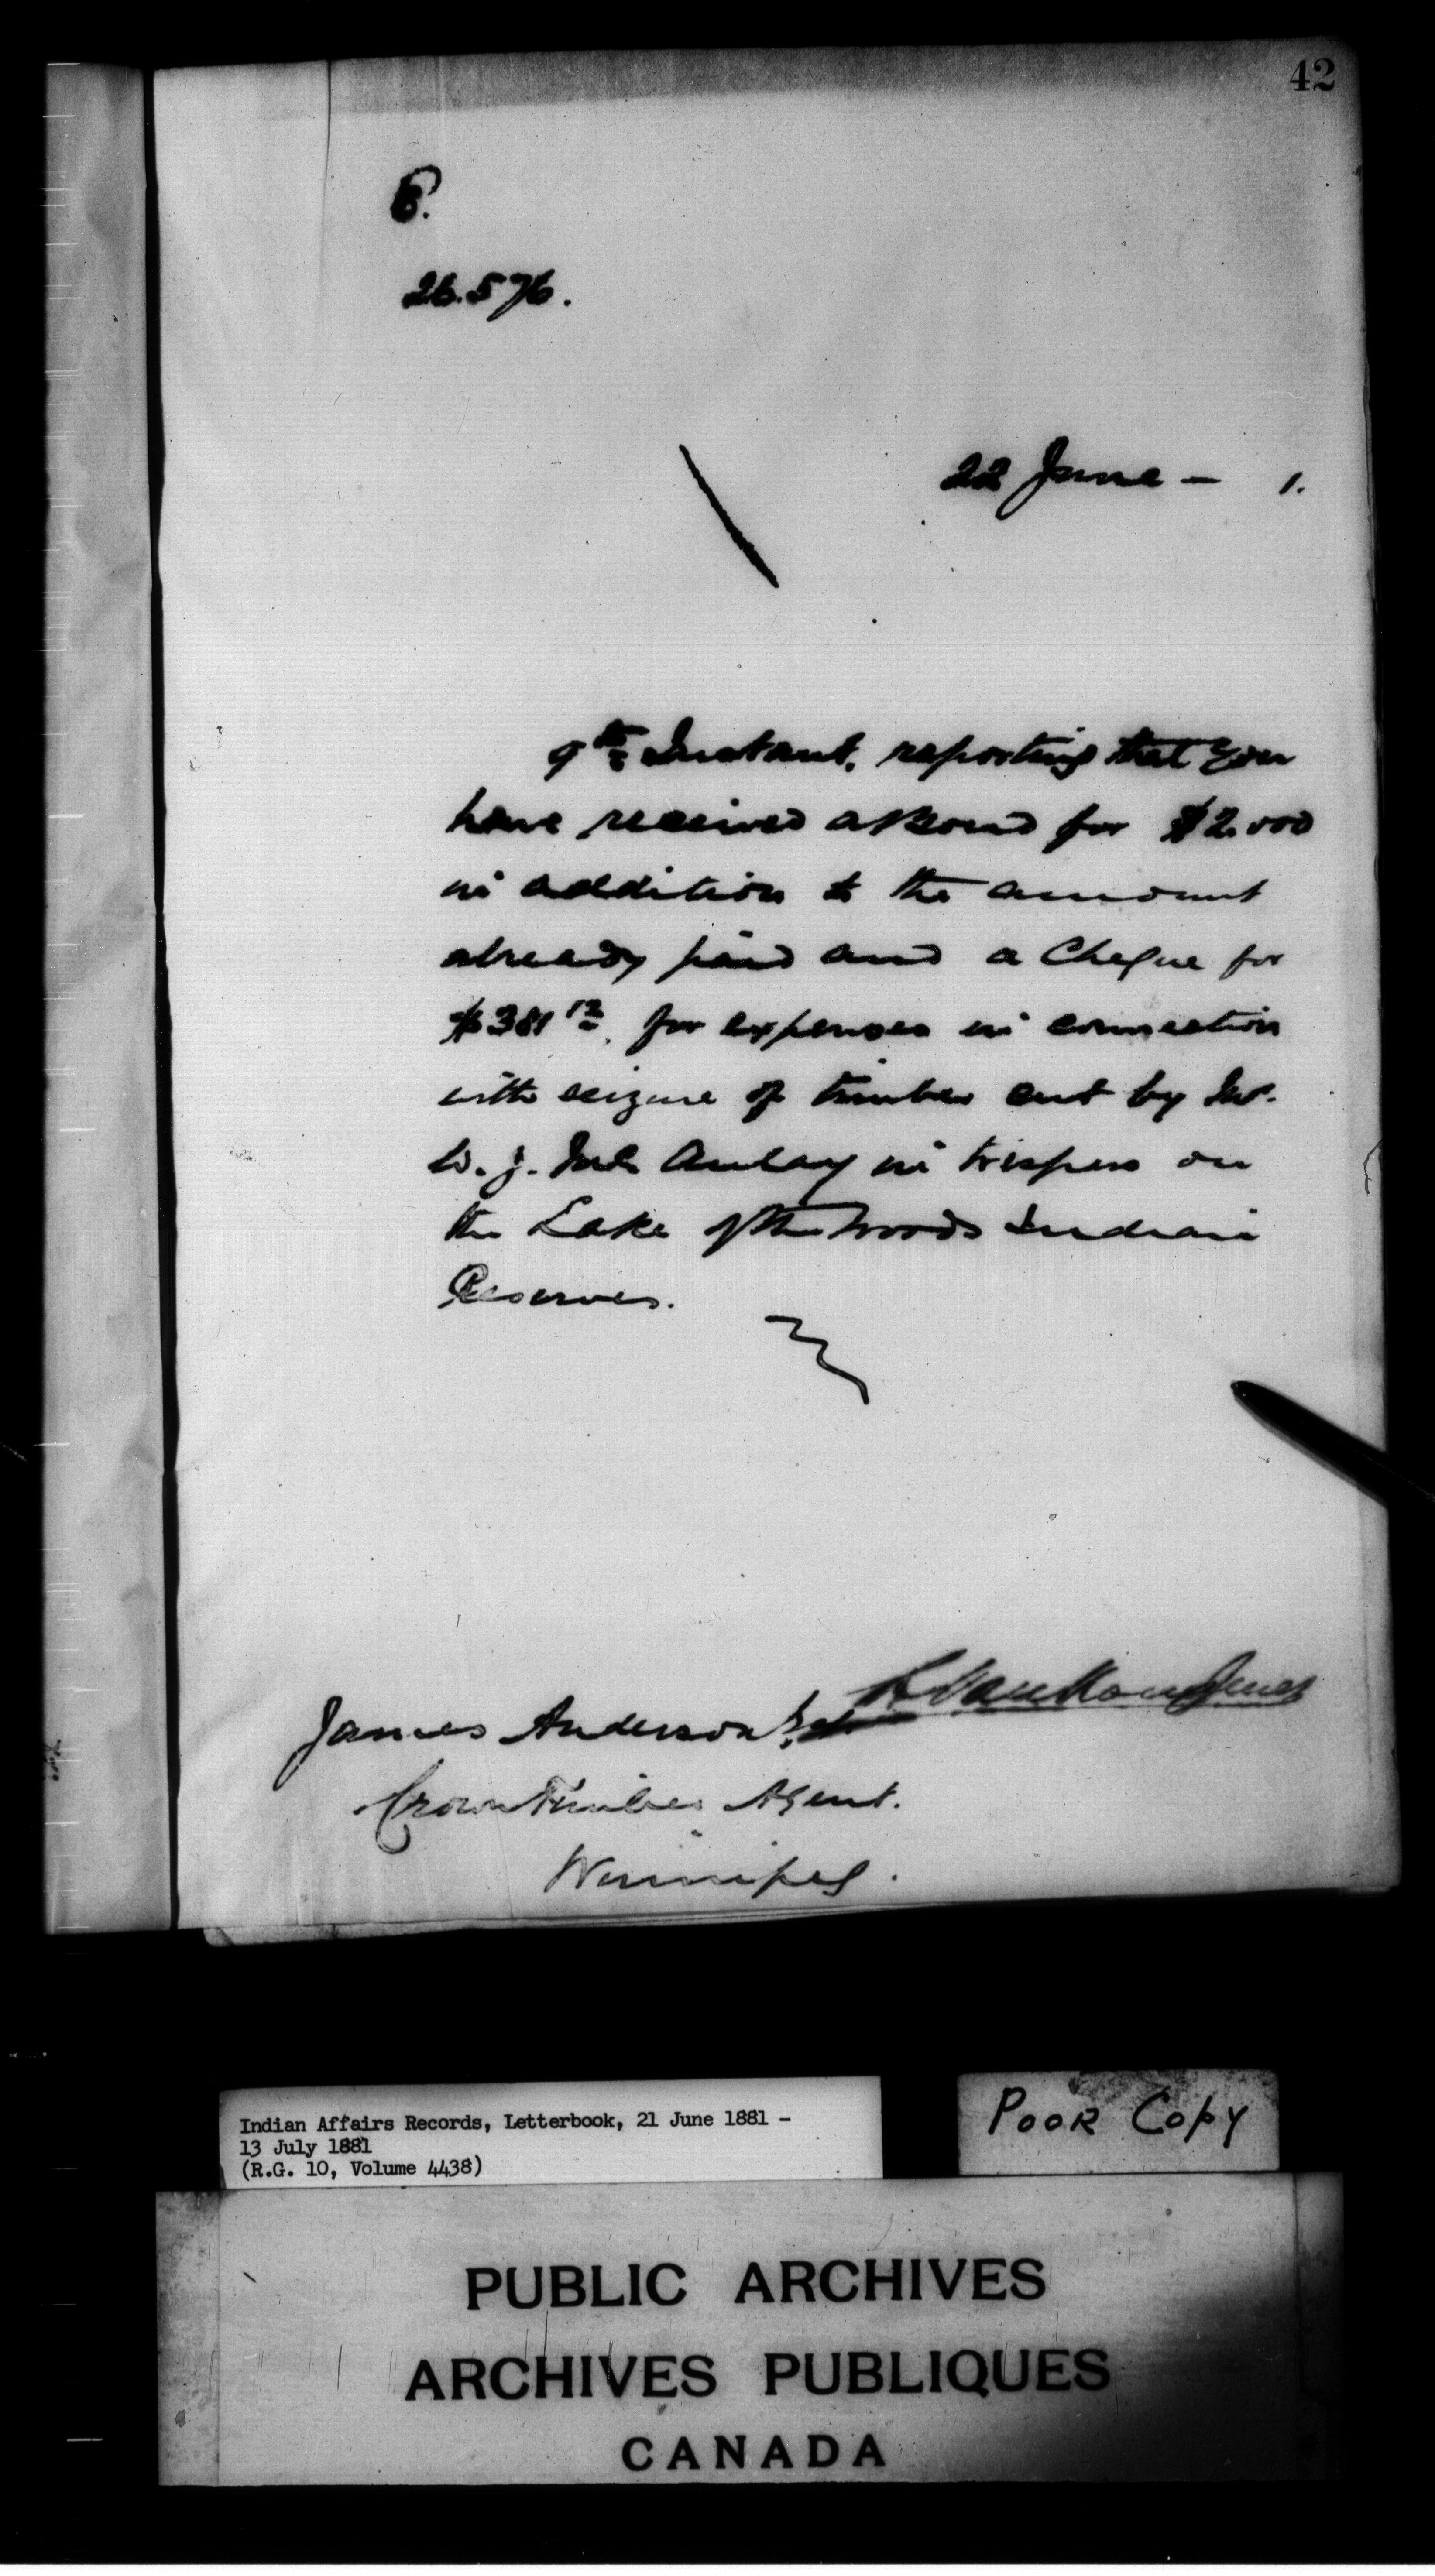 42
26.576.
22 June – 1.
9th Instant, reporting that you
have received a Bond for $2.000
in addition to the amount
already paid and a Cheque for
$381 12/ for expenses in connection
with seizure of timber cut by Mr.
W. J. McAulay in trespass on
the Lake of the Woods Indian
Reserves.
L. VanKoughnet
James Anderson Esq.
Crown Timber Agent.
Winnipeg.
Indian Affairs Records, Letterbook, 21 June 1881 -
13 July 1881
(R.G. 10, Volume 4438)
POOR COPY
PUBLIC ARCHIVES
ARCHIVES PUBLIQUES
CANADA